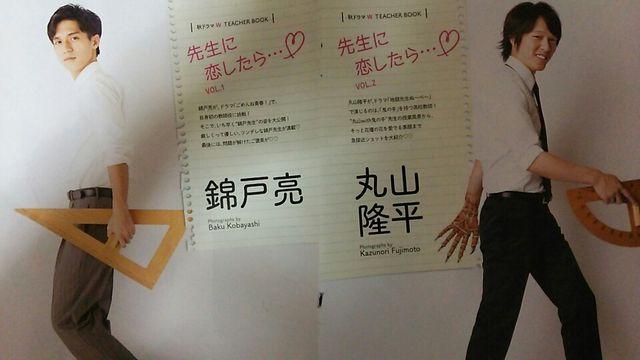 秋ドラマ W TEACHER BOOK
先生に
恋したら…♡
VOL.1
錦戸亮が、ドラマ「ごめんね青春!」で、
自身初の教師役に挑戦!
そこで、いち早く“錦戸先生”の姿を大公開!
厳しくって優しい、ツンデレな錦戸先生が満載♡
最後には、問題が解けたご褒美が♡♡
錦戸亮
Photographs by
Baku Kobayashi
秋ドラマ W TEACHER BOOK
先生に
恋したら…♡
VOL.2
丸山隆平が、ドラマ「地獄先生ぬ〜べ〜」
で演じるのは、「鬼の手」を持つ高校教師!
“丸山with鬼の手”先生の授業風景から、
そっと花壇の花を愛でる素顔まで
急接近ショットを大紹介♡
丸山
隆平
Photographs by
Kazunori Fujimoto